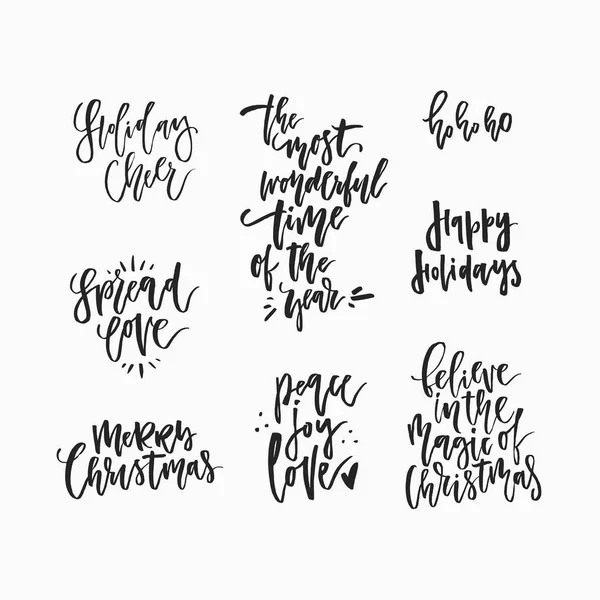 Holiday
Cheer
the
most
wonderful
time
of the
year
ho ho ho
Happy
Holidays
Spread
love
Merry
Christmas
peace
joy
love
believe
in the
magic of
Christmas